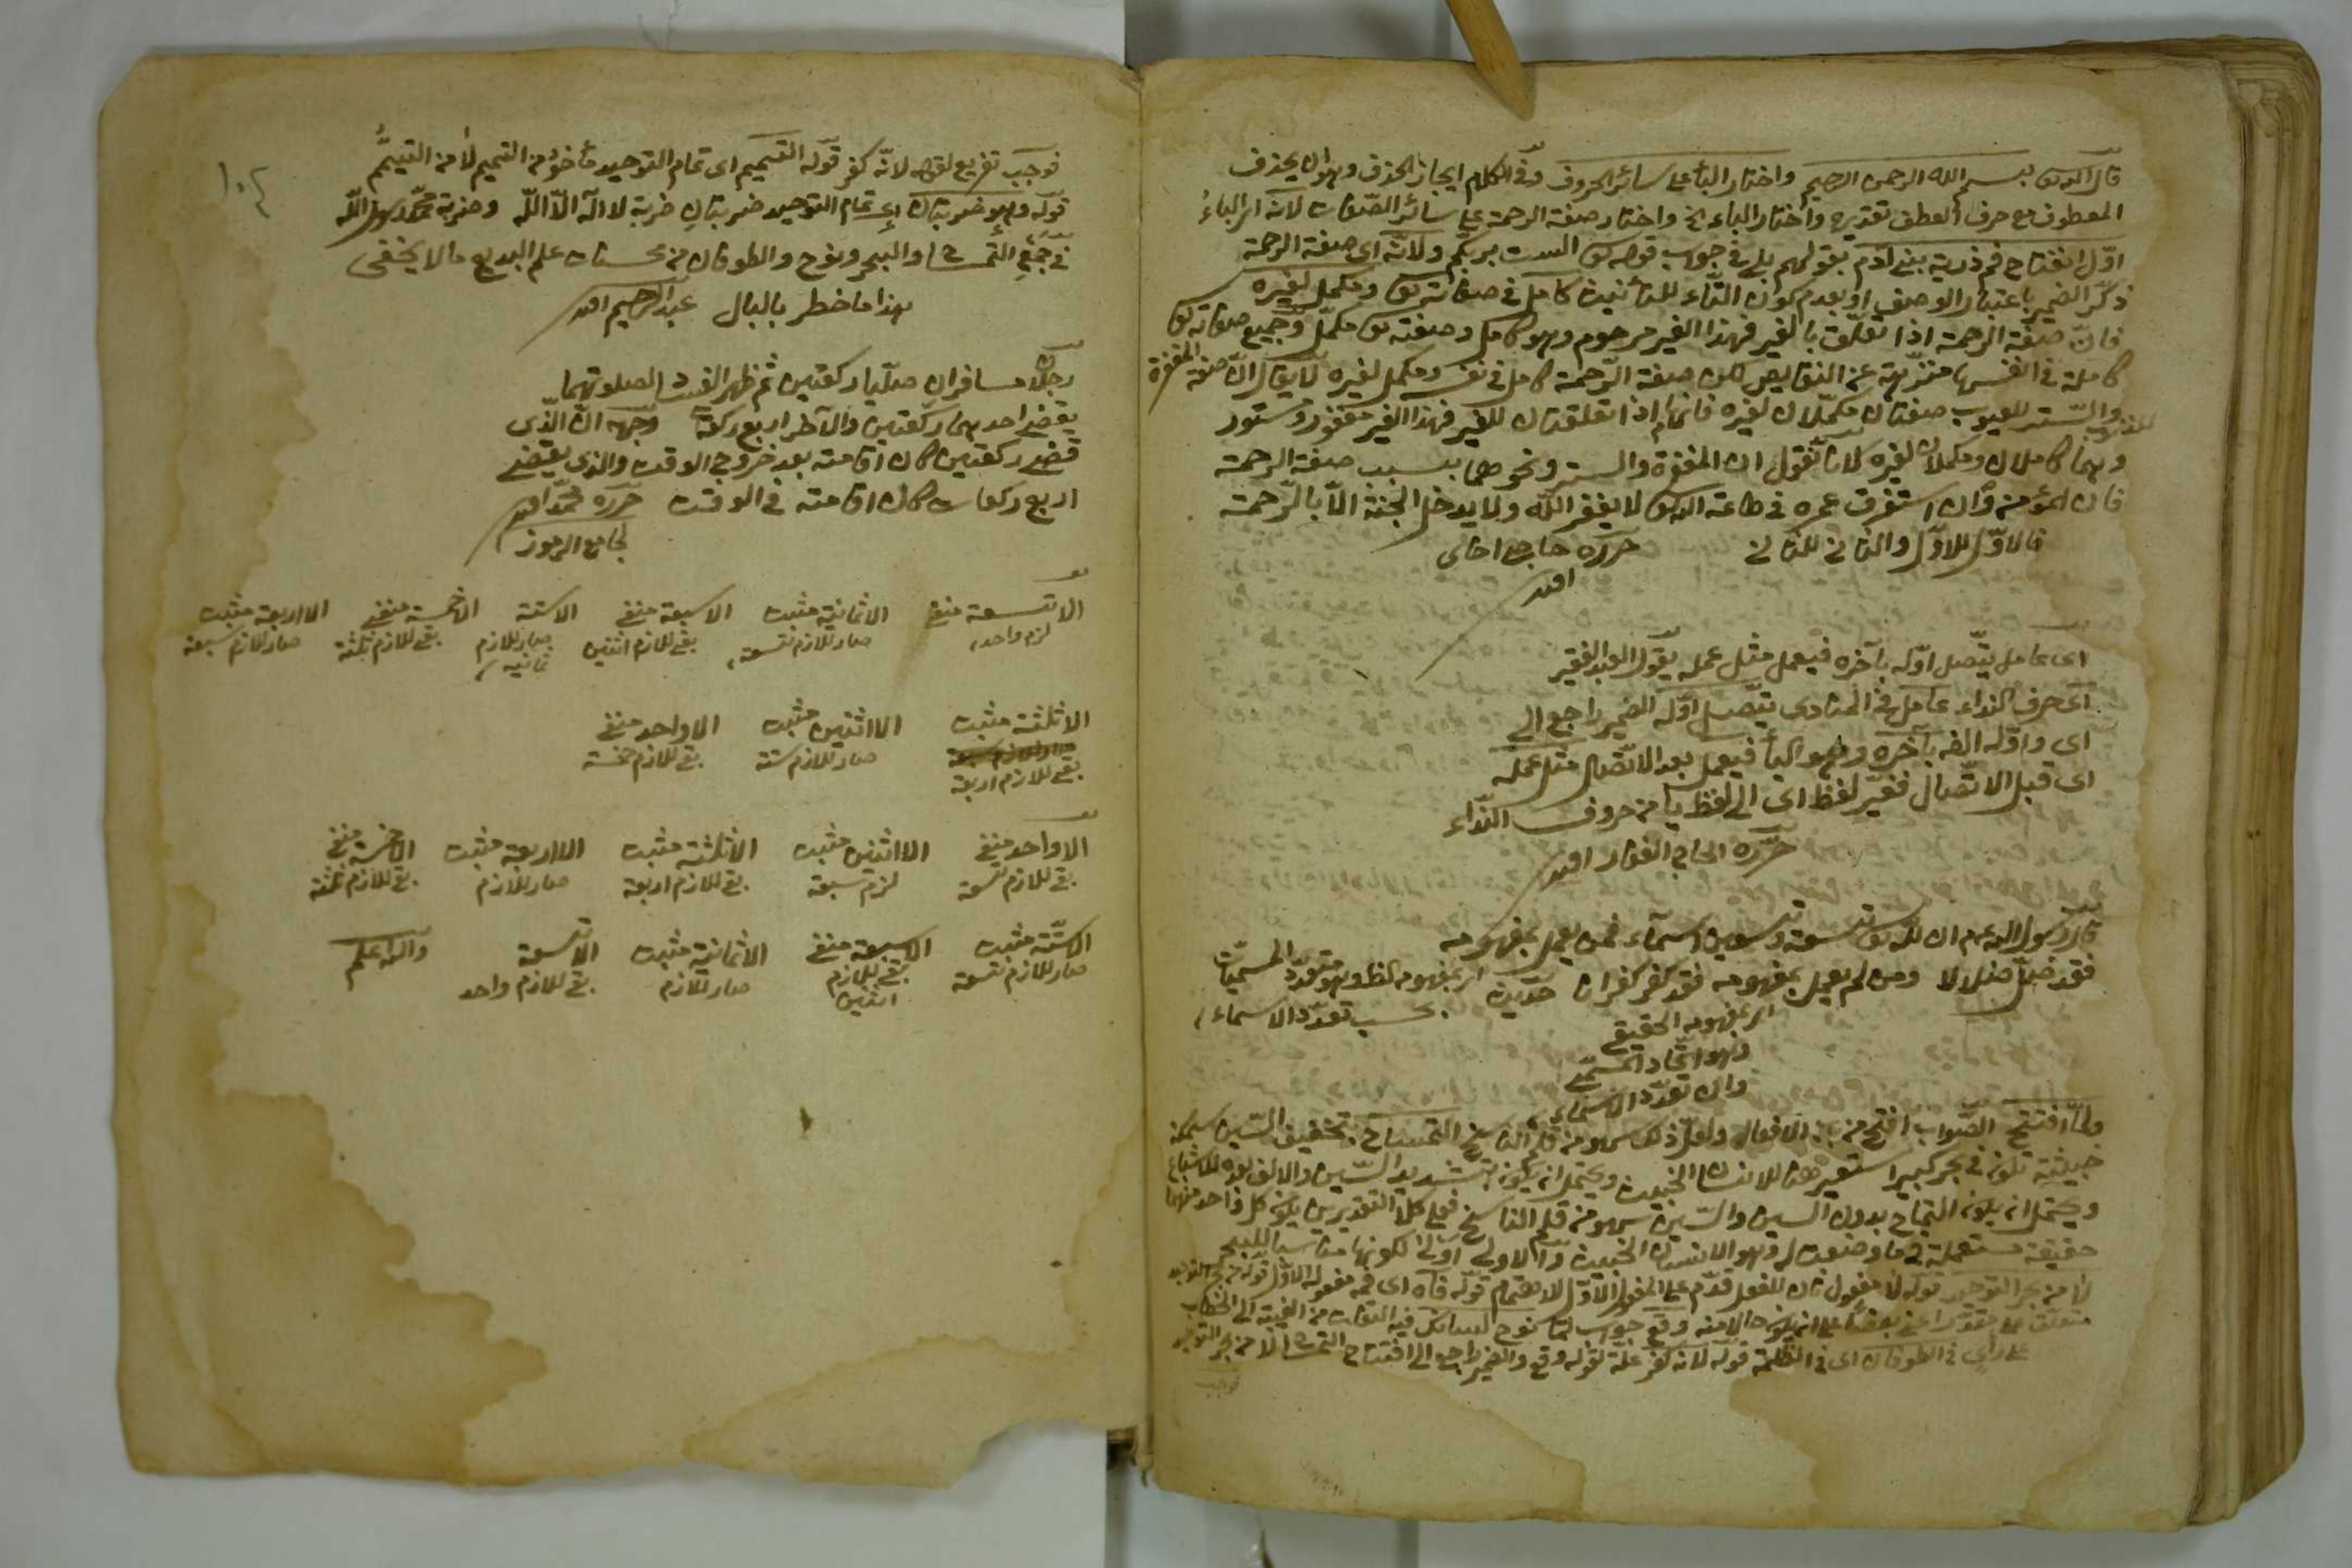 قال الله تعالى بسم الله الرحمن الرحيم واختار الباء على سائر الحروف وفى الكلام ايجاز الحذف وهو ان يحذف
المعطوف مع حرف العطف تقديره واختار الباء الخ واختار صفة الرحمة على سائر الصفات لانه اى الباء
اوّل انفتاح فم ذرية بنى آدم بقولهم بلى فى جواب قوله تعالى الست بربكم ولانه اى صفة الرحمة
ذكّر الضمير باعتبار الوصف او بعدم كون التاء للتأنيث كامل فى صفات تعالى ومكمل لغيره
فانّ صفة الرحمة اذا تعلّقت بالغير فهذا الغير مرحوم وهو كامل وصفته تعالى مكمّل وجميع صفاته تعالى
كاملة فى انفسها منزّهة عن النقايص لكن صفة الرّحمة كامل فى نفسه ومكمل لغيره لا يقال انّ صفة المغفرة
للذنوب والسّتر للعيوب صفتان مكمّلان لغيره فانهما اذا تعلقتان للغير فهذا الغير مغفور ومستور
وهما كاملان ومكملان لغيره لانا نقول ان المغفرة والستر ونحوهما بسبب صفة الرحمة
فان المؤمن وان استغرق عمره فى طاعة الله تعالى لا يغفر الله ولا يدخل الجنة الّا بالرّحمة
فالاوّل للاوّل والثانى للثانى حرره حاجى
افندى
اى عامل يتّصل اوّله بآخره فيعمل مثل عمله يقول العبد الفقير
اى حرف النداء عامل فى المنادى يتّصل اوّله الضمير راجع الى
اى واوّله الفه بآخره وهو الياء فيعمل بعد الاتّصال مثل عمله
اى قبل الاتّصال فغيّر لفظ اى الى لفظ يا من حروف النّداء
حرّره الحاجى الغفار افندى
قال رسول الله عم ان لله تعالى تسعة وتسعين اسماء فمن يعمل بمفهومه
فقد ضلّ ضلالا ومن لم يعمل بمفهومه فقد كفر كفرانا حديث اى بمفهومه لفظ وهو تعدّد المسميّات
بحسب تعدّد الاسماء
اى بمفهومه الحقيقى
وهو اتّحاد المسمّى
وان تعدّد الاسماء
ولمّا افتتح الصّواب افتح من باب الافعال ولعلّ ذلك سهو من قلم الناسخ التمساح بتخفيف السّين سمكة
خبيثة تكون فى بحر كبير استعير هنا للانسان الخبيث ويحتمل ان يكون بتشديد السّين والالف بعده للاشباع
ويحتمل ان يكون التمّاح بدون السين والسّين سهو من قلم الناسخ فعلى كلا التقديرين يكون كل واحد منهما
حقيقة مستعملة فى ما وضعت له وهو الانسان الخبيث والاولى اولى لكونها مناسبا للبحر
لأ من بحر التوحيد قوله لأ مفعول ثان للفعل قدّم على المفعول الاوّل للاهتمام قوله فاه اى فمه مفعوله الاوّل قوله من بحر التوحيد
متعلّق على مقدّر اعنى بعضاً على ان يكون حالا منه وقع جواب لمّا نوح السائل فيه التفات من الغيبة الى الخطاب
على رأى فى الطوفان اى فى الظلمة قوله لانه كفر علّة لقوله وقع والضمير راجع الى افتتاح التمساح لأ من بحر التوحيد
فوجب
١٠٤
فوجب تفريع لقوله لانّه كفر قوله التيميم اى تمام التوحيد مأخوذ من التيميم لا من التيمّم
قوله وهو ضربتان اى تمام التوحيد ضربتان ضربة لا اله الّا الله وضربة محمّد رسول الله
فى جمع التمساح والبحر ونوح والطوفان من محسنات علم البديع ما لا يخفى
هذا ما خطر بالبال عبد الرحيم افندى
رجلان مسافران صلّيا ركعتين ثم ظهر الفساد لصلوتهما
يقضى احدهما ركعتين والآخر اربع ركعة وجهه انّ الذى
قضى ركعتين كان اقامته بعد خروج الوقت والذى يقضى
اربع ركعات كان اقامته فى الوقت حرره محمّد افندى
لجامع الرموز
الا تسعة منفى الا ثمانية مثبت الا سبعة منفى الا ستة الا خمسة منفى الا اربعة مثبت
لزم واحد صار للازم تسعة بقى للازم اثنين صار للازم ثمانية بقى للازم ثلثة صار للازم سبعة
الا ثلثة مثبت الا اثنين مثبت الا واحد منفى
بقى للازم اربعة صار للازم ستة بقى للازم خمسة
الا واحد منفى الا اثنين مثبت الا ثلثة مثبت الا اربعة مثبت الا خمسة منفى
بقى للازم تسعة لزم سبعة بقى للازم اربعة صار للازم بقى للازم ثلثة
الا ستّة مثبت الا سبعة منفى الا ثمانية مثبت الا تسعة والله اعلم
صار للازم تسعة بقى للازم اثنين صار للازم بقى للازم واحد